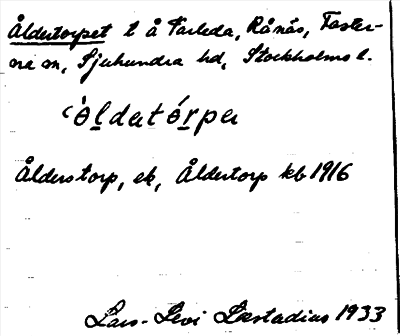 Åldertorpet t å Farleda, Rånäs, Faster-
na sn, Sjuhundra hd, Stockholms l.
‘ò̀ldətórpə
Ålderstorp, ek, Åldertorp kb 1916
Lars-Levi Læstadius 1933